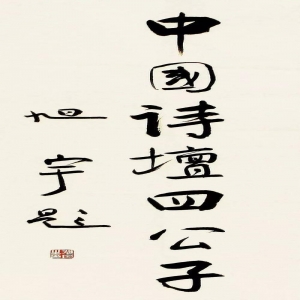 中國诗壇四公子
旭宇题